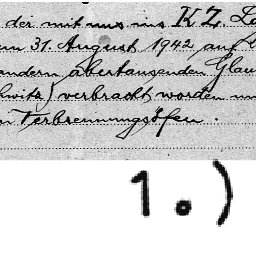 der mit uns ins KZ
31. August 1942 auf
andern abertausenden Glau
witz) verbracht worden
Verbrennungsöfen.
1.)